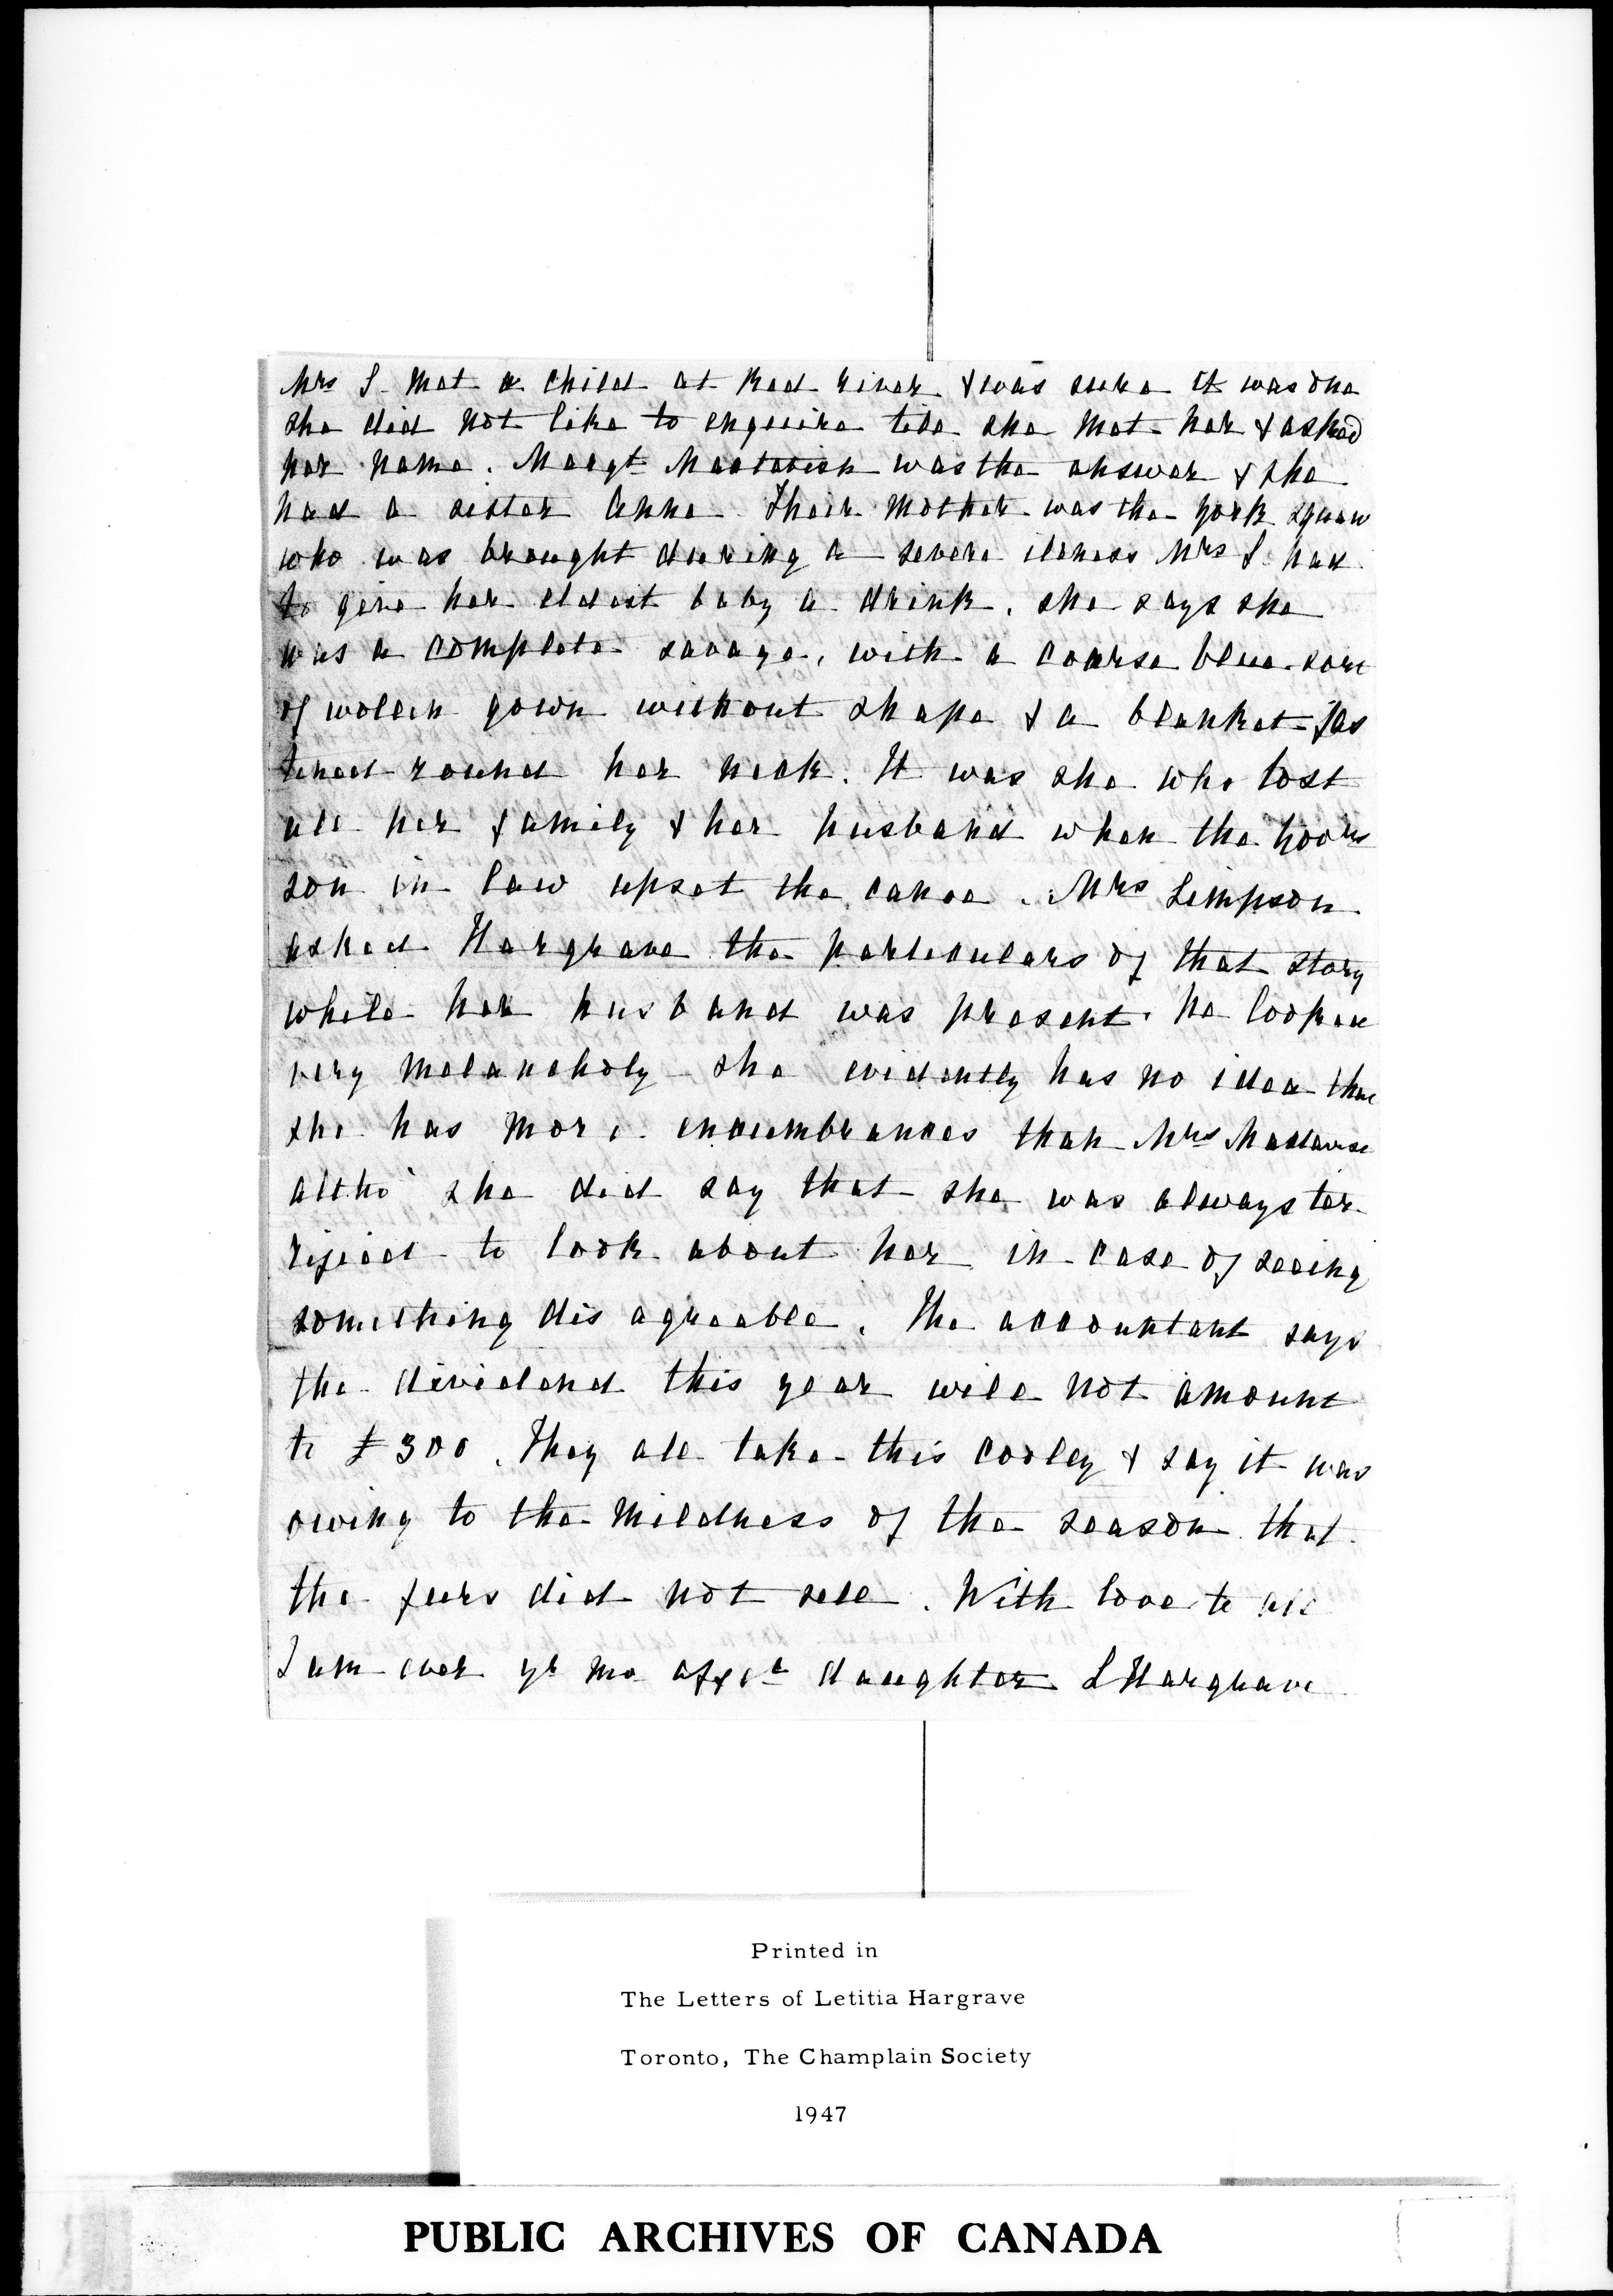 Mrs S. met a child at Red river & was sure it was one
She did not like to enquire till she met her & asked
her name. Margt Mactavish was the answer & she
had a sister Anne. Their mother was the York squaw
who was brought during a severe illness Mrs S. had
to give her eldest baby a drink. She says she
was a complete savage, with a coarse blue sort
of wollen gown without shape & a blanket fas
tened round her neck. It was she who lost
all her family & her husband when the
son in law upset the canoe. Mrs Simpson
asked Hargrave the particulars of that story
while her husband was present. he looked
very melancholy she evidently has no idea that
she has more encumbrances than Mrs Mactavish
altho' she did say that she was always ter
rified to look about her in case of seeing
something dis agreable. The accountant says
the dividend this year will not amount
to £300. They all take this coolly & say it was
owing to the mildness of the season that
the furs did not sell. With love to all
I am ever yr mo affecte daughter L Hargrave
Printed in
The Letters of Letitia Hargrave
Toronto, The Champlain Society
1947
PUBLIC ARCHIVES OF CANADA